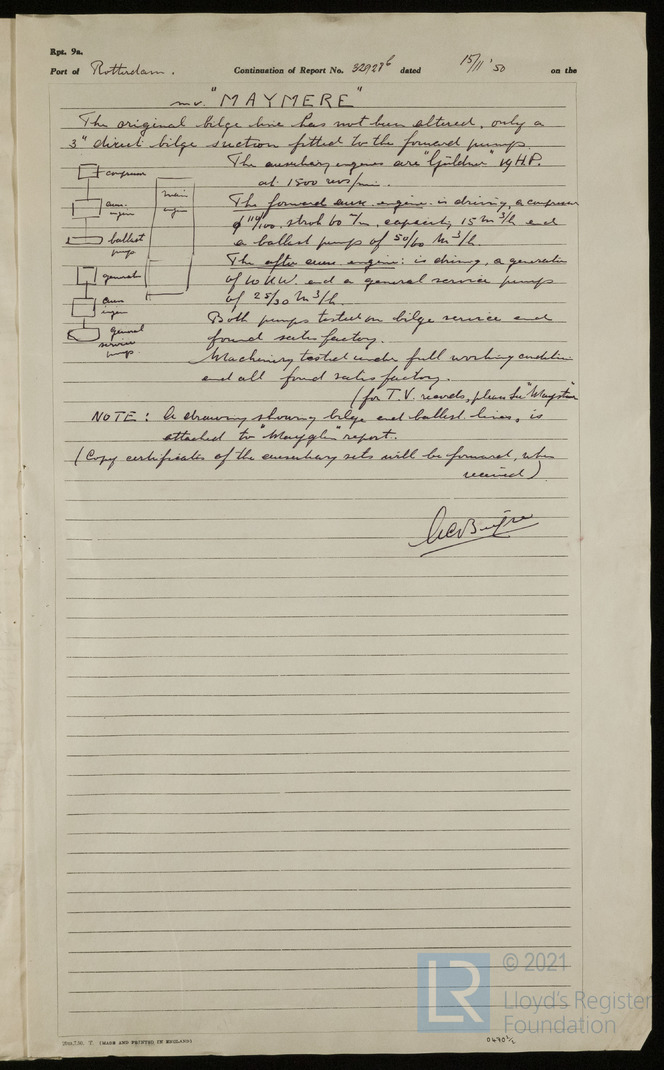 Rpt. 9a.
Port of Rotterdam. Continuation of Report No. dated 15/11 '50 on the
m.v. "MAYMERE"
The original bilge line has not been altered, only a
3" direct bilge suction fitted to the forward pump.
The auxiliary engines are "Güldner" H.P.
at 1500 revs/min.
compressor
aux. engine
ballast pump
main engine
generator
aux engine
general service pump.
The forward aux. engine is driving a compressor
stroke 60 m/m, capacity 15 m³/h and
a ballast pump of 50/60 m³/h.
The after aux. engine: is driving a generator
of 10 KW. and a general service pump
of 25/30 m³/h.
Both pumps tested on bilge service and
found satisfactory.
Machinery tested under full working condition
and all found satisfactory.
(for T.V. records, please see
NOTE: A drawing showing bilge and ballast lines, is
attached to report.
(Copy certificates of the auxiliary sets will be forward, when
received)
20M.7.50. T. (MADE AND PRINTED IN ENGLAND)
© 2021
LR
Lloyd's Register
Foundation